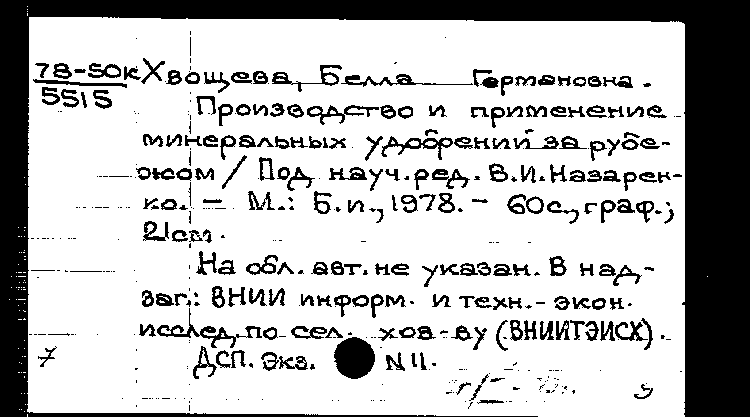 78-50к Хвощева, Белла Германовна.
5515
Производство и применение
минеральных удобрений за рубе-
жом / Под науч. ред. В.И. Назарен-
ко. - М.: Б.и., 1978. - 60с., граф.;
21см.
На обл. авт. не указан. В над-
заг.: ВНИИ информ. и техн.-экон.
исслед. по сел. хоз-ву (ВНИИТЭИСХ).
ДСП. Экз. N 11.
7